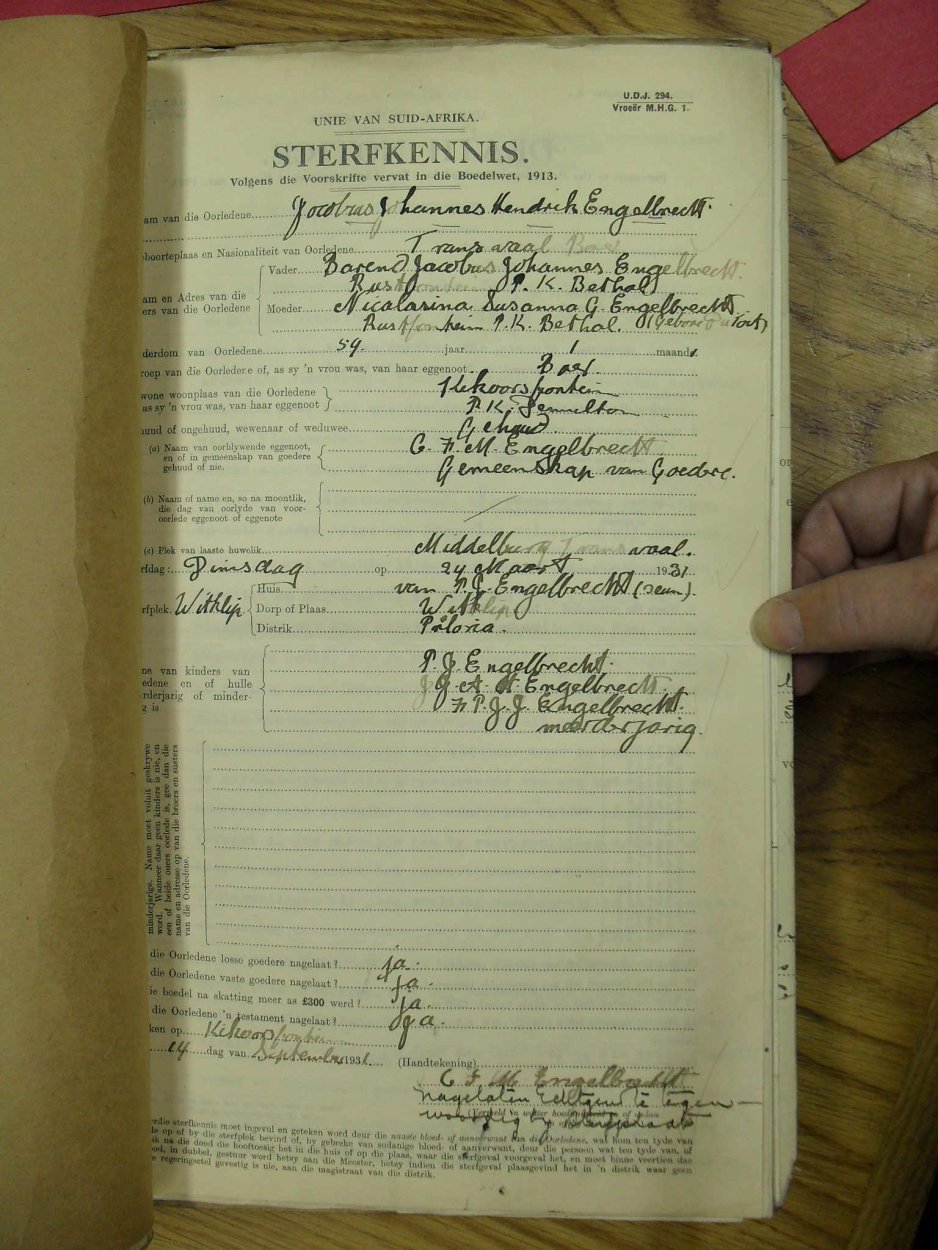 U.D.J. 294.
Vroeër M.H.G. 1.
UNIE VAN SUID-AFRIKA.
STERFKENNIS.
Volgens die Voorskrifte vervat in die Boedelwet, 1913.
am van die Oorledene Jacobus Johannes Hendrik Engelbrecht.
boorteplaas en Nasionaliteit van Oorledene Transvaal Boer
Vader Barend Jacobus Johannes Engelbrecht
Rustfontein P.K. Bethal
am en Adres van die
ers van die Oorledene
Moeder Nicalasina Susanna G. Engelbrecht
Rustfontein P.K. Bethal. (Gebore
derdom van Oorledene 59. jaar 1 maand
roep van die Oorledene of, as sy 'n vrou was, van haar eggenoot Boer.
wone woonplaas van die Oorledene
as sy 'n vrou was, van haar eggenoot
P.K.
huud of ongehuud, wewenaar of weduwee Gehuud
(a) Naam van oorblywende eggenoot,
en of in gemeenskap van goedere
gehuud of nie.
C. F. M. Engelbrecht
Gemeenskap van Goedre.
(b) Naam of name en, so na moontlik,
die dag van oorlyde van voor-
oorlede eggenoot of eggenote
(c) Plek van laaste huwelik Middelburg Transvaal.
rfdag: Dinsdag op 24 Maart 1931
rfplek. Witklip
Huis van P.J. Engelbrecht (seun).
Dorp of Plaas Witklip
Distrik Pritoria.
ne van kinders van
edene en of hulle
rderjarig of minder-
g is
P. J. Engelbrecht.
J G A H Engelbrecht.
F. P. J. J. Engelbrecht.
meerderjarig.
minderjarige. Name moet voluit geskrywe
word. Wanneer daar geen kinders is nie, en
een of beide ouers oorlede is, gee dan die
name en adresse op van die broers en susters
van die Oorledene.
die Oorledene losse goedere nagelaat? ja.
die Oorledene vaste goedere nagelaat? ja.
ie boedel na skatting meer as £300 werd? ja.
die Oorledene 'n testament nagelaat? Ja.
ken op
14 dag van September 1931.
(Handtekening)
C F M Engelbrecht
nagelaten
rdie sterfkennis moet ingevul en geteken word deur die naaste bloed- of aanverwant van die Oorledene, wat hom ten tyde van
le op of by die sterfplek bevind of, by gebreke van sodanige bloed- of aanverwant, deur die persoon wat ten tyde van, of
ik na die dood die hooftoesig het in die huis of op die plaas, waar die sterfgeval voorgeval het, en moet binne veertien dae
od, in dubbel, gestuur word hetsy aan die Meester, hetsy indien die sterfgeval plaasgevind het in 'n distrik waar geen
e regeringsetel gevestig is nie, aan die magistraat van die distrik.